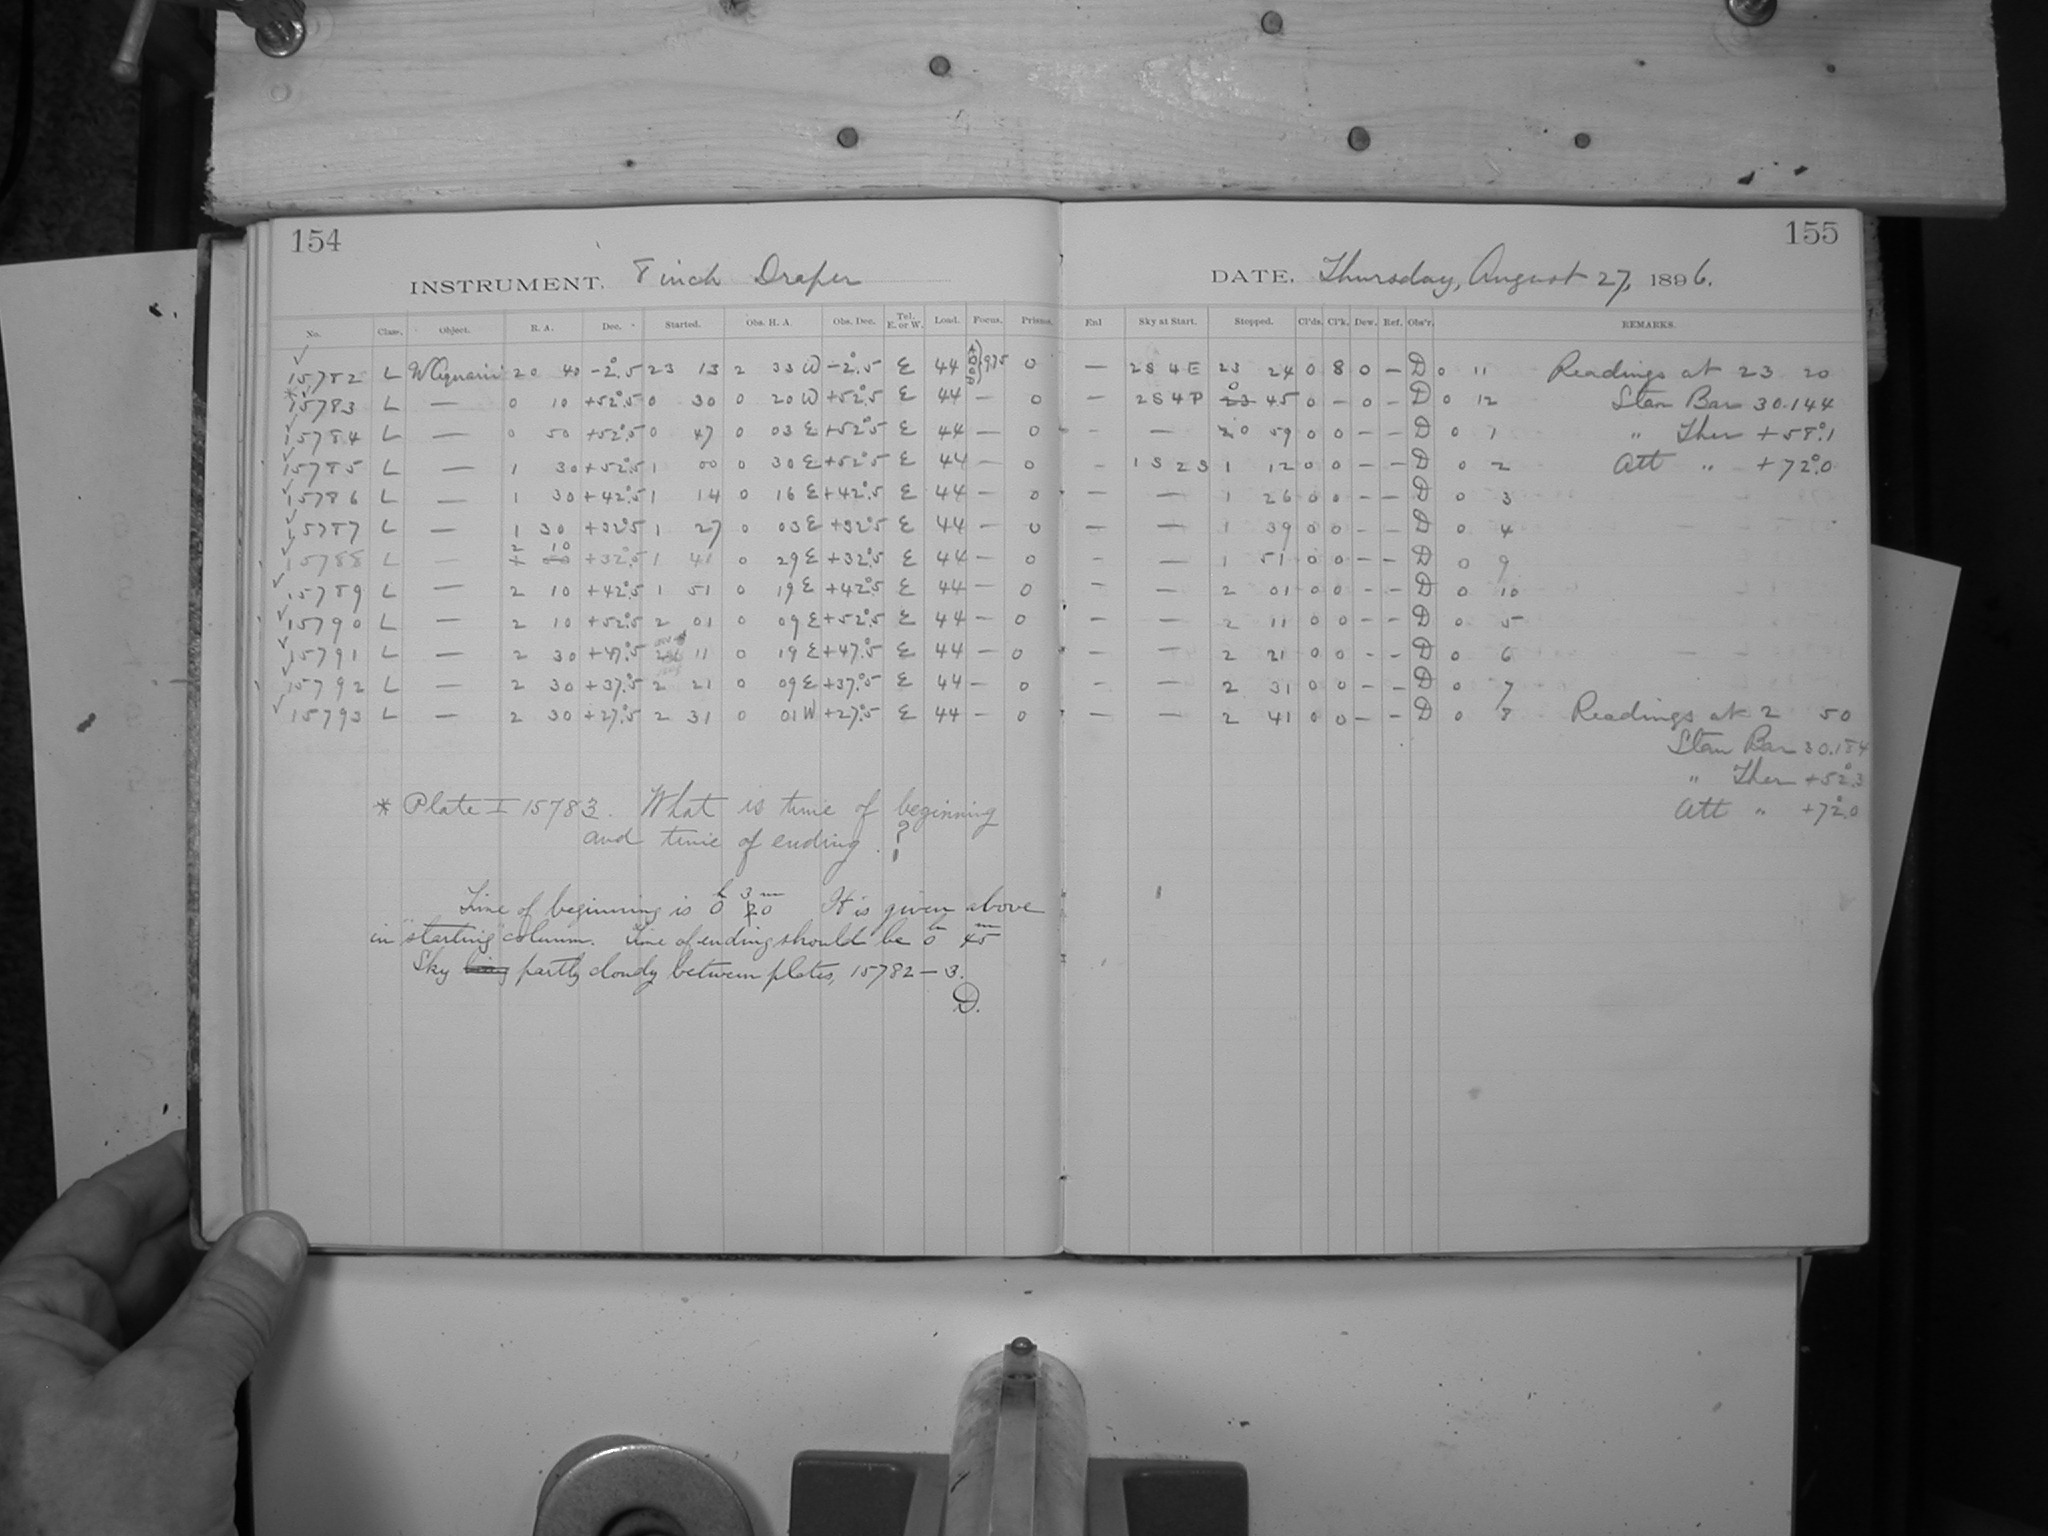 154
155
INSTRUMENT. 8 inch Draper
DATE. Thursday, August 27, 1896.
No. Class. Object. R. A. Dec. Started. Obs. H. A. Obs. Dec. Tel. E. or W. Load. Focus. Prisms. Enl Sky at Start. Stopped. Cl'ds. Cl'k. Dew. Ref. Obs'r. REMARKS.
15782 L W Aquarii 20 40 -2°.5 23 13 2 33 W -2°.5 E 44 975 0 — 2S 4E 23 24 0 8 0 — D 0 11 Readings at 23 20
*15783 L — 0 10 +52°.5 0 30 0 20 W +52°.5 E 44 — 0 — 2S 4P 0 23 45 0 — 0 — D 0 12 Stan Bar 30.144
15784 L — 0 50 +52°.5 0 47 0 03 E +52°.5 E 44 — 0 - — 0 59 0 0 — — D 0 1 " Ther +58°.1
15785 L — 1 30 +52°.5 1 00 0 30 E +52°.5 E 44 — 0 - 1S 2S 1 12 0 0 — — D 0 2 Att " +72°.0
15786 L — 1 30 +42°.5 1 14 0 16 E +42°.5 E 44 — 0 — — 1 26 0 0 — — D 0 3
15787 L — 1 30 +32°.5 1 27 0 03 E +32°.5 E 44 — 0 — — 1 39 0 0 — — D 0 4
15788 L — 2 10 +32°.5 1 41 0 29 E +32°.5 E 44 — 0 - — 1 51 0 0 — — D 0 9
15789 L — 2 10 +42°.5 1 51 0 19 E +42°.5 E 44 — 0 - — 2 01 0 0 — — D 0 10
15790 L — 2 10 +52°.5 2 01 0 09 E +52°.5 E 44 — 0 - — 2 11 0 0 — — D 0 5
15791 L — 2 30 +47°.5 2 11 0 19 E +47°.5 E 44 — 0 - — 2 21 0 0 — — D 0 6
15792 L — 2 30 +37°.5 2 21 0 09 E +37°.5 E 44 — 0 - — 2 31 0 0 — — D 0 7
15793 L — 2 30 +27°.5 2 31 0 01 W +27°.5 E 44 — 0 — — 2 41 0 0 — — D 0 8 Readings at 2 50
Stan Bar 30.184
" Ther +52°.3
Att " +72°.0
* Plate I 15783. What is time of beginning
and time of ending. ?
Time of beginning is 0h 30m It is given above
in "starting" column. Time of ending should be 0h 45m
Sky partly cloudy between plates, 15782 — 3.
D.